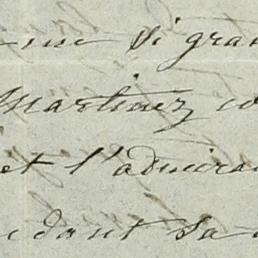 une si gran
Martinez co
et l'admira
dont sa